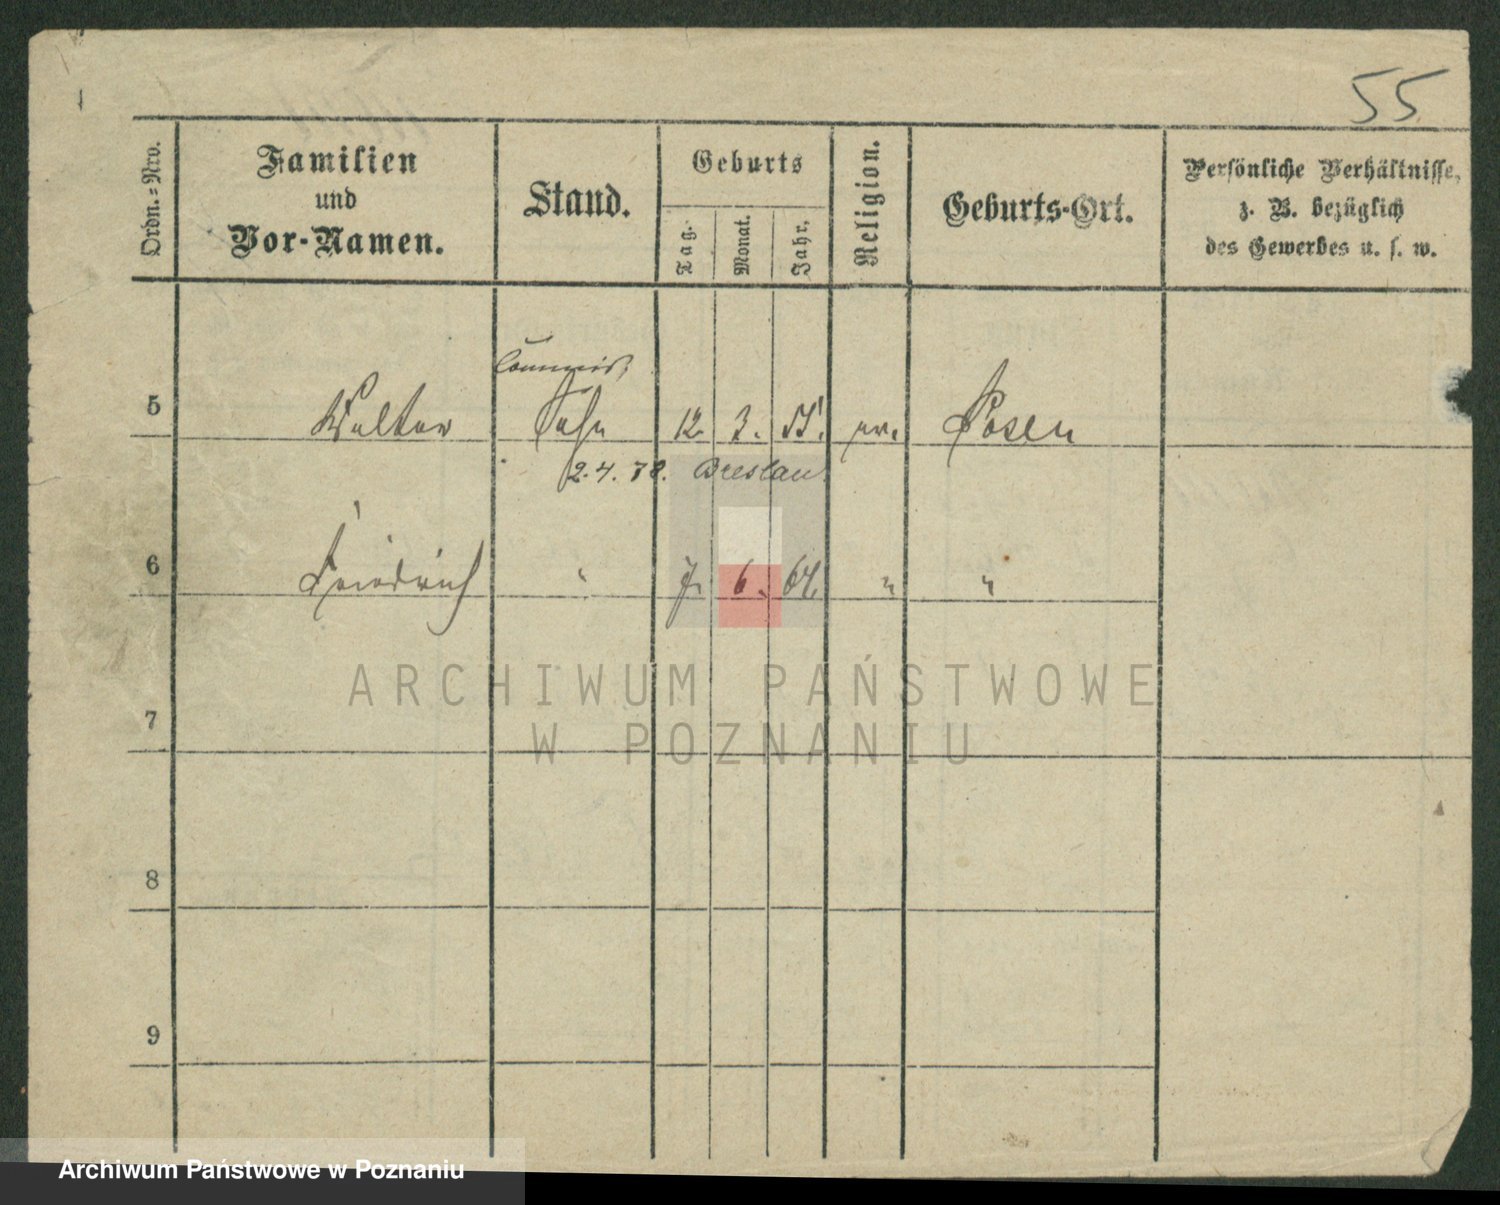 55
Ordn.=Nro.
Familien
und
Vor-Namen.
Stand.
Geburts
Tag.
Monat.
Jahr.
Religion.
Geburts-Ort.
Persönliche Verhältnisse,
z. B. bezüglich
des Gewerbes u. s. w.
Commis,
5 Walter Sohn 12. 3. 55. ev. Posen
2. 4. 78. Breslau.
6 Friedrich " 7. 6. 64. " "
ARCHIWUM PAŃSTWOWE
W POZNANIU
7
8
9
Archiwum Państwowe w Poznaniu